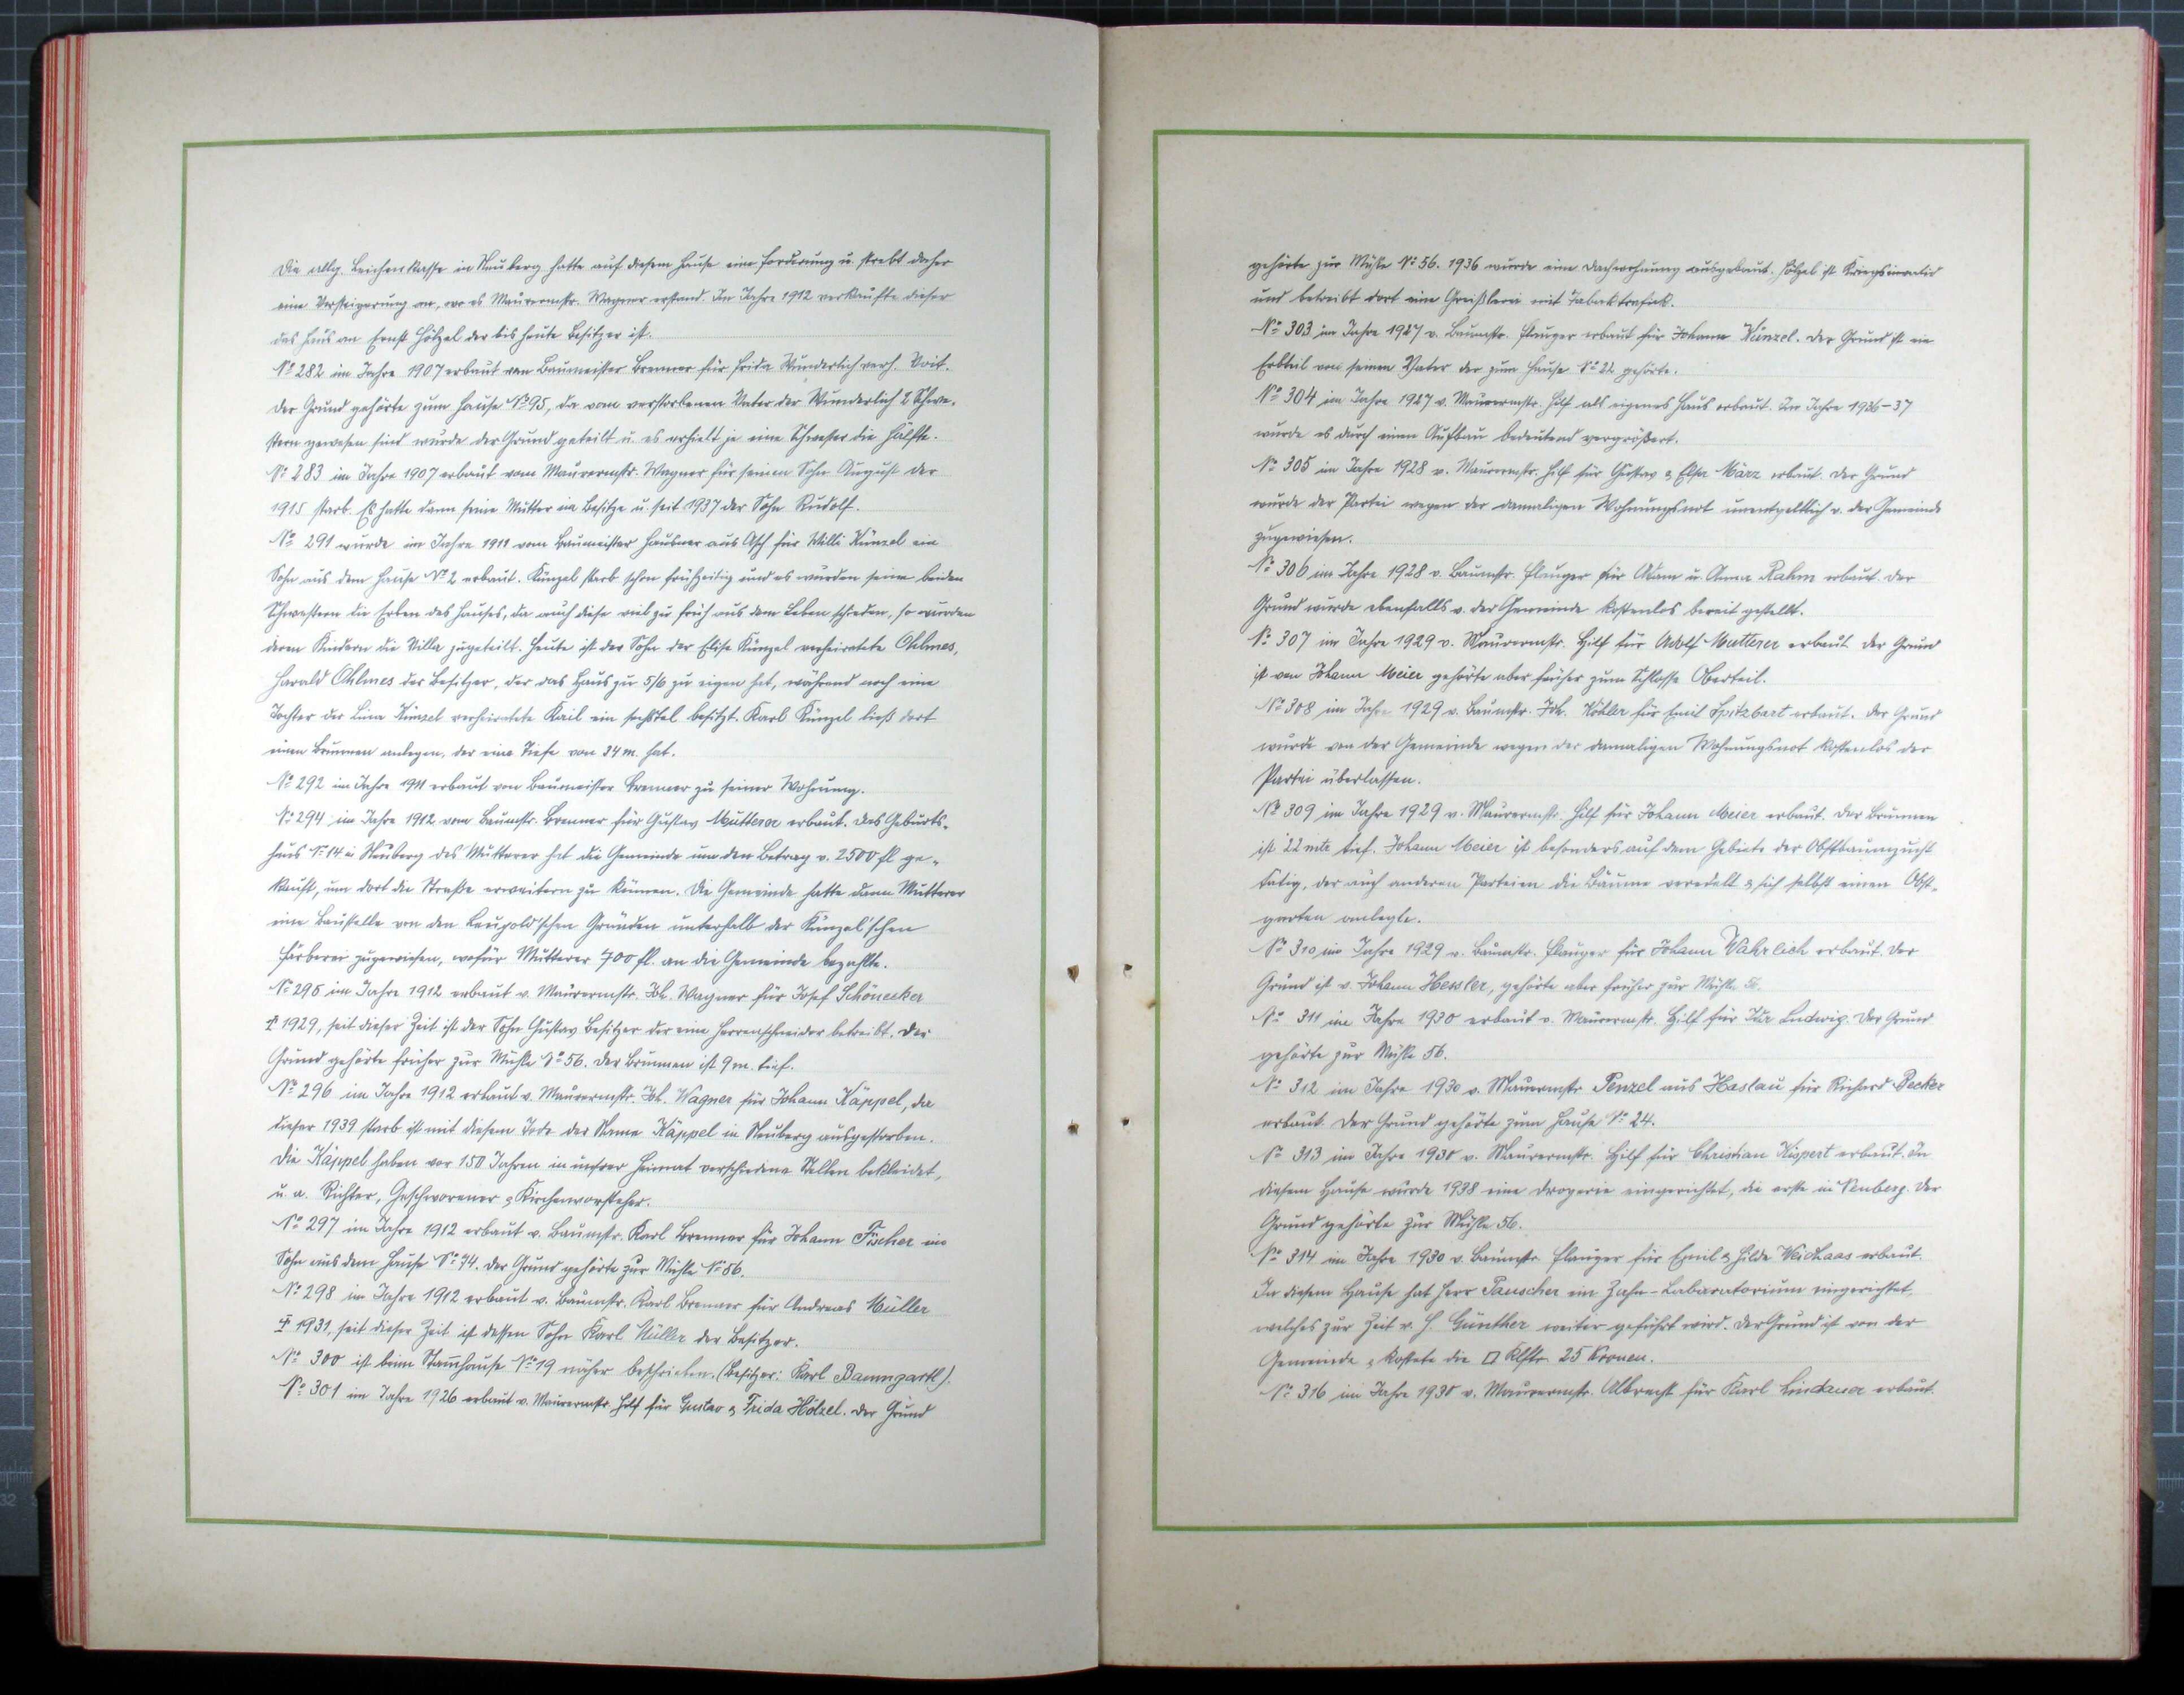 Die allg. Leichenkasse in Neuberg hatte auf diesem Hause eine Forderung u. strebt daher
eine Versteigerung an, wo es Maurermstr. Wagner erstand. Im Jahre 1912 verkaufte dieser
das Haus an Ernst Hölzel der bis heute Besitzer ist.
No 282 im Jahre 1907 erbaut von Baumeister Brenner für Frida Wunderlich verh. Voit.
Der Grund gehörte zum Hause No 95, da vom verstorbenen Vater der Wunderlich 2 Schwe-
stern gewesen sind wurde der Grund geteilt u. es erhielt je eine Schwester die Hälfte.
No 283 im Jahre 1907 erbaut vom Maurermstr. Wagner für seinen Sohn August der
1915 starb. Es hatte dann seine Mutter im Besitze u. seit 1937 der Sohn Rudolf.
No 291 wurde im Jahre 1911 vom Baumeister Hausner aus Asch für Willi Künzel ein
Sohn aus dem Hause No 2 erbaut. Künzel starb schon frühzeitig und es wurden seine beiden
Schwestern die Erben des Hauses, da auch diese viel zu früh aus dem Leben schieden, so wurden
deren Kindern die Villa zugeteilt. Heute ist der Sohn der Elise Künzel verheiratete Ohlmes,
Harald Ohlmes der Besitzer, der das Haus zu 5/6 zu eigen hat, während noch eine
Tochter der Lina Künzel verheiratete Kail ein sechstel besitzt. Karl Künzel ließ dort
einen Brunnen anlegen, der eine Tiefe von 34 m. hat.
No 292 im Jahre 1911 erbaut von Baumeister Brenner zu seiner Wohnung.
No 294 im Jahre 1912 vom Baumstr. Brenner für Gustav Mutterer erbaut. Das Geburts-
haus No 14 in Neuberg des Mutterer hat die Gemeinde um den Betrag v. 2500 fl ge-
kauft, um dort die Straße erweitern zu können. Die Gemeinde hatte dann Mutterer
eine Baustelle von den Leupold'schen Gründen unterhalb der Künzel'schen
Färberei zugewiesen, wofür Mutterer 700 fl. an die Gemeinde bezahlte.
No 295 im Jahre 1912 erbaut v. Maurermstr. Joh. Wagner für Josef Schönecker
† 1929, seit dieser Zeit ist der Sohn Gustav Besitzer der eine Herrenschneider betreibt. Der
Grund gehörte früher zur Mühle No 56. Der Brunnen ist 9 m. tief.
No 296 im Jahre 1912 erbaut v. Maurermstr. Joh. Wagner für Johann Käppel, da
dieser 1939 starb ist mit diesem Tode der Name Käppel in Neuberg ausgestorben.
Die Käppel haben vor 150 Jahren in unsrer Heimat verschiedene Stellen bekleidet,
u. a. Richter, Geschworener & Kirchenvorsteher.
No 297 im Jahre 1912 erbaut v. Baumstr. Karl Brenner für Johann Fischer ein
Sohn aus dem Hause No 74. Der Grund gehörte zur Mühle No 56.
No 298 im Jahre 1912 erbaut v. Baumstr. Karl Brenner für Andreas Müller
† 1931, seit dieser Zeit ist dessen Sohn Karl Müller der Besitzer.
No 300 ist beim Stammhause No 19 näher beschrieben. (Besitzer: Karl Baumgartl).
No 301 im Jahre 1926 erbaut v. Maurermstr. Hilf für Gustav & Frida Hölzel. Der Grund
gehörte zur Mühle No 56. 1936 wurde eine Dachwohnung ausgebaut. Hölzel ist Kriegsinvalid
und betreibt dort eine Greißlerei mit Tabaktrafik.
No 303 im Jahre 1927 v. Baumstr. Flauger erbaut für Johann Künzel. Der Grund ist ein
Erbteil von seinem Vater der zum Hause No 22 gehörte.
No 304 im Jahre 1927 v. Maurermstr. Hilf als eigenes Haus erbaut. Im Jahre 1936-37
wurde es durch einen Aufbau bedeutend vergrößert.
No 305 im Jahre 1928 v. Maurermstr. Hilf für Gustav & Elsa März erbaut. Der Grund
wurde der Partei wegen der damaligen Wohnungsnot unentgeltlich v. der Gemeinde
zugewiesen.
No 306 im Jahre 1928 v. Baumstr. Flauger für Adam u. Anna Rahm erbaut. Der
Grund wurde ebenfalls v. der Gemeinde kostenlos bereit gestellt.
No 307 im Jahre 1929 v. Maurermstr. Hilf für Adolf Mutterer erbaut. Der Grund
ist von Johann Meier gehörte aber früher zum Schlosse Oberteil.
No 308 im Jahre 1929 v. Baumstr. Joh. Köhler für Emil Spitzbart erbaut. Der Grund
wurde von der Gemeinde wegen der damaligen Wohnungsnot kostenlos der
Partei überlassen.
No 309 im Jahre 1929 v. Maurermstr. Hilf für Johann Meier erbaut. Der Brunnen
ist 22 mtr tief. Johann Meier ist besonders auf dem Gebiete der Obstbaumzucht
tätig, der auch anderen Parteien die Bäume veredelt & sich selbst einen Obst-
garten anlegte.
No 310 im Jahre 1929 v. Baumstr. Flauger für Johann Wahrlich erbaut. Der
Grund ist v. Johann Hessler, gehörte aber früher zur Mühle 56.
No 311 im Jahre 1930 erbaut v. Maurermstr. Hilf für Ida Ludwig. Der Grund
gehörte zur Mühle 56.
No 312 im Jahre 1930 v. Maurermstr. Penzel aus Haslau für Richard Becker
erbaut. Der Grund gehörte zum Hause No 24.
No 313 im Jahre 1930 v. Maurermstr. Hilf für Christian Kispert erbaut. In
diesem Hause wurde 1938 eine Drogerie eingerichtet, die erste in Neuberg. Der
Grund gehörte zur Mühle 56.
No 314 im Jahre 1930 v. Baumstr. Flauger für Emil & Hilde Weidhaas erbaut.
In diesem Hause hat Herr Pauscher ein Zahn-Labaratorium eingerichtet,
welches zur Zeit v. H. Günther weiter geführt wird. Der Grund ist von der
Gemeinde & kostete die □ Klftr. 25 Kronen.
No 316 im Jahre 1930 v. Maurermstr. Albrecht für Karl Lindauer erbaut.